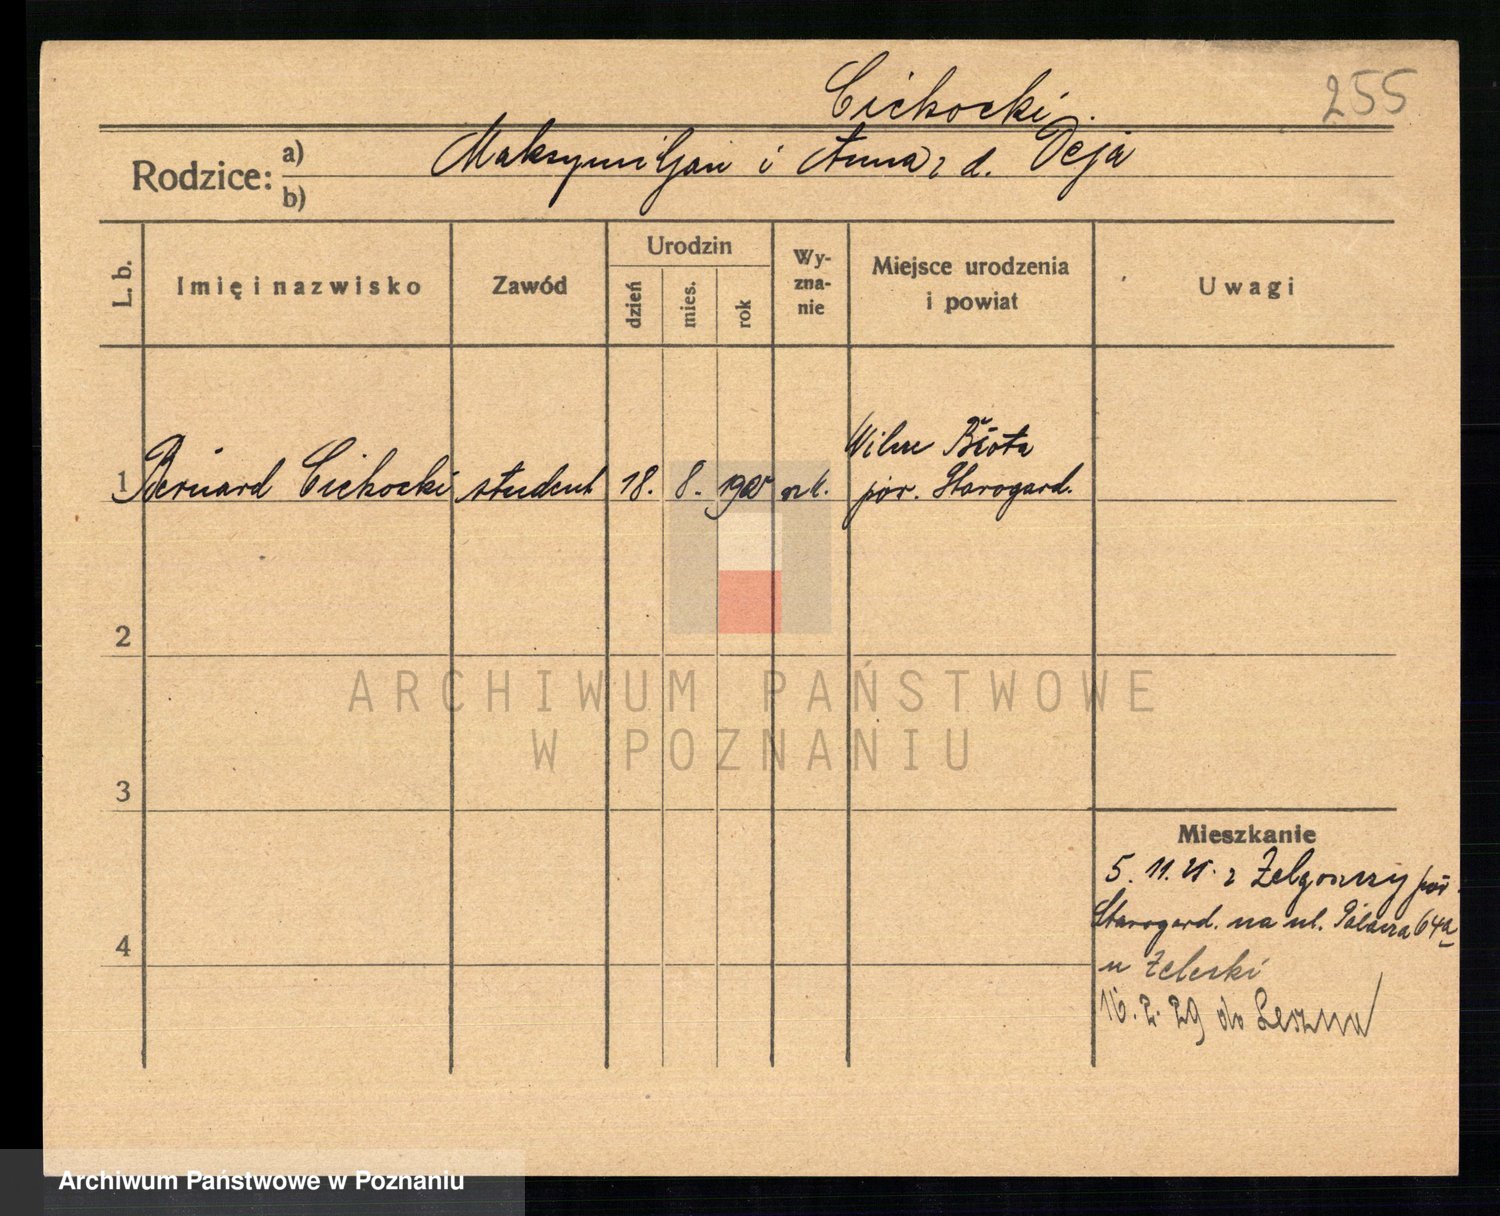 255
Cichocki.
Rodzice: a) Maksymiljan i Anna z d. Deja
b)
L. b. Imię i nazwisko Zawód Urodzin dzień mies. rok Wy-zna-nie Miejsce urodzenia i powiat Uwagi
1 Bernard Cichocki student 18. 8. rz k. Wilcze Błota
pow. Starogard.
2
3
4
Mieszkanie
5. 11. z pow.
Starogard. na ul. 64a
u Zeleski
16. 2. 29 do Leszna
ARCHIWUM PAŃSTWOWE
W POZNANIU
Archiwum Państwowe w Poznaniu